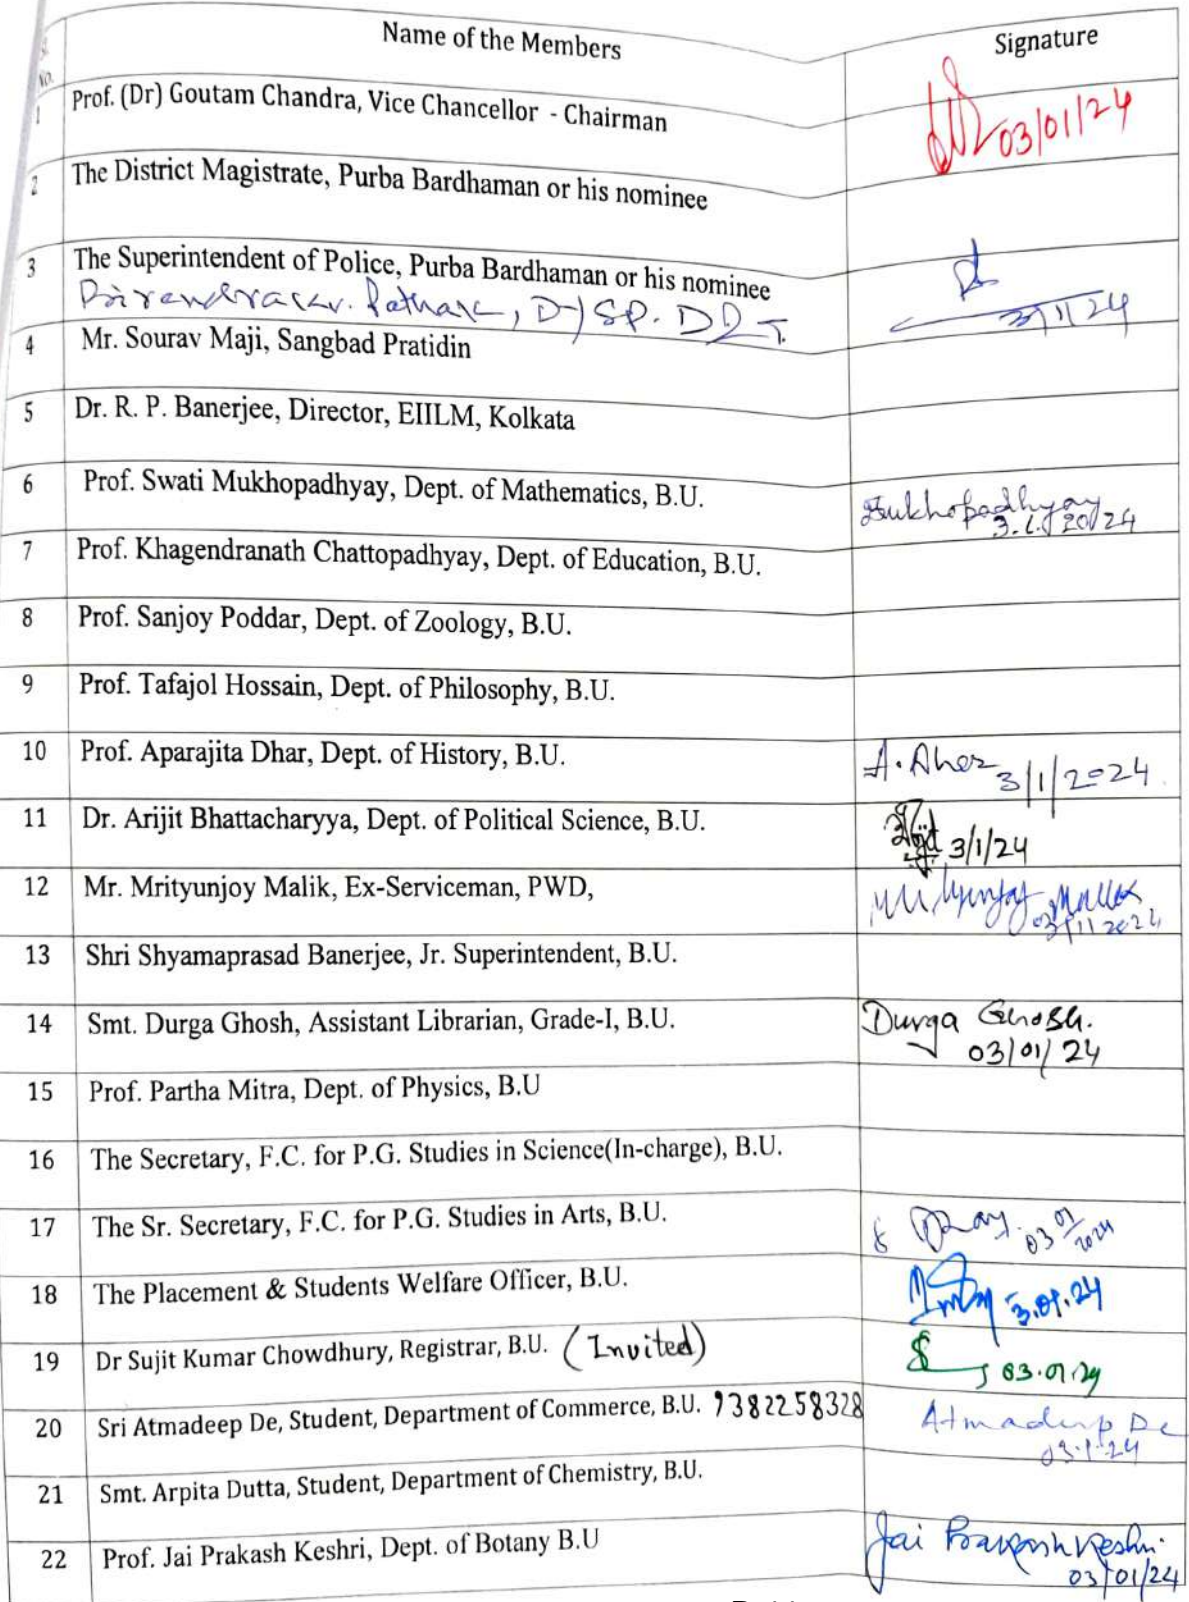 Sl. No. Name of the Members Signature
1 Prof. (Dr) Goutam Chandra, Vice Chancellor - Chairman 03/01/24
2 The District Magistrate, Purba Bardhaman or his nominee
3 The Superintendent of Police, Purba Bardhaman or his nominee
Pathak, Dy SP. D&T. 3/1/24
4 Mr. Sourav Maji, Sangbad Pratidin
5 Dr. R. P. Banerjee, Director, EIILM, Kolkata
6 Prof. Swati Mukhopadhyay, Dept. of Mathematics, B.U. SMukhopadhyay
3.1.2024
7 Prof. Khagendranath Chattopadhyay, Dept. of Education, B.U.
8 Prof. Sanjoy Poddar, Dept. of Zoology, B.U.
9 Prof. Tafajol Hossain, Dept. of Philosophy, B.U.
10 Prof. Aparajita Dhar, Dept. of History, B.U. A. Dhar 3/1/2024
11 Dr. Arijit Bhattacharyya, Dept. of Political Science, B.U. 3/1/24
12 Mr. Mrityunjoy Malik, Ex-Serviceman, PWD, Mrityunjoy Mallik
03/1/2024
13 Shri Shyamaprasad Banerjee, Jr. Superintendent, B.U.
14 Smt. Durga Ghosh, Assistant Librarian, Grade-I, B.U. Durga Ghosh.
03/01/24
15 Prof. Partha Mitra, Dept. of Physics, B.U
16 The Secretary, F.C. for P.G. Studies in Science(In-charge), B.U.
17 The Sr. Secretary, F.C. for P.G. Studies in Arts, B.U. 03/01/2024
18 The Placement & Students Welfare Officer, B.U. 3.01.24
19 Dr Sujit Kumar Chowdhury, Registrar, B.U. (Invited) 03.01.24
20 Sri Atmadeep De, Student, Department of Commerce, B.U. 9382258328 Atmadeep De
03.1.24
21 Smt. Arpita Dutta, Student, Department of Chemistry, B.U.
22 Prof. Jai Prakash Keshri, Dept. of Botany B.U Jai Prakash Keshri.
03/01/24